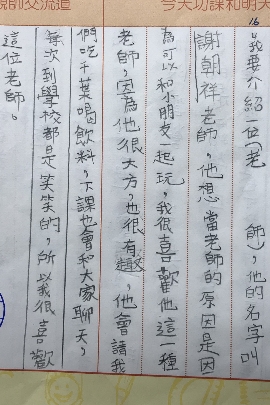 親師交流道
今天功課和明天
16
我要介紹一位(老 師),他的名字叫
謝朝祥老師,他想當老師的原因是因
為可以和小朋友一起玩,我很喜歡他這一種
老師,因為他很大方,也很有趣,他會請我
們吃干菜喝飲料,下課也會和大家聊天,
每次到學校都是笑笑的,所以我很喜歡
這位老師。